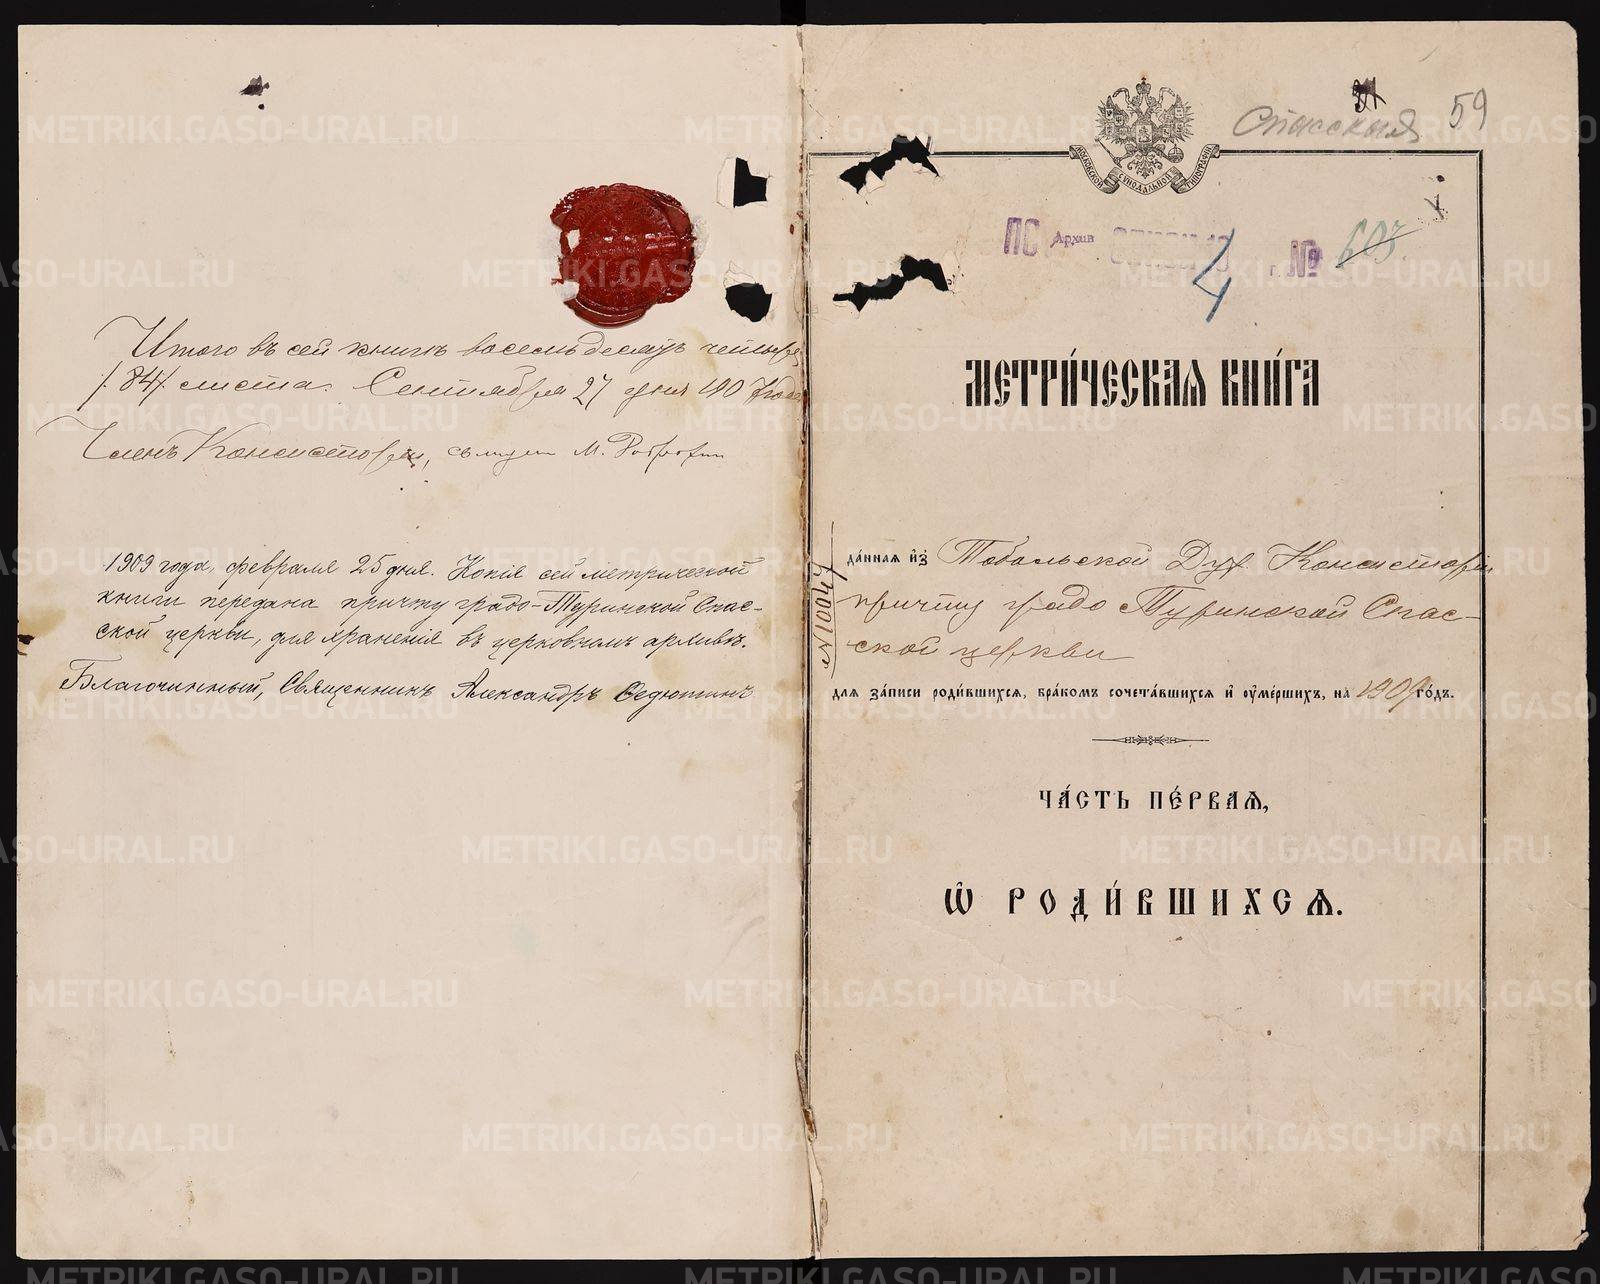 Итого въ сей книгѣ восемьдесятъ четыре
/84/ листа. Сентября 27 дня 190 года
Членъ Консисторіи, священ М.
1909 года, февраля 25 дня. Копія сей метрической
книги передана причту градо-Туринской Спас-
ской церкви, для храненія въ церковномъ архивѣ.
Благочинный, Священникъ Александръ Седютинъ
Спасская 59
МОСКОВСКОЙ СѴНОДАЛЬНОЙ ТИПОГРАФІИ
ПС Архив 4 г. № 603
МЕТРИ́ЧЕСКАѦ КНИ́ГА
№10047
да́ннаѧ и҆з̾ Тобольской Дух. Консисторіи
причту градо Туринской Спас-
ской церкви
для за́писи роди́вшихсѧ, бра́комъ сочета́вшихсѧ и҆ ᲂу҆ме́ршихъ, на 1909 го́дъ.
ЧА́СТЬ ПЕ́РВАѦ,
Ѽ РОДИ́ВШИХСѦ.
METRIKI.GASO-URAL.RU